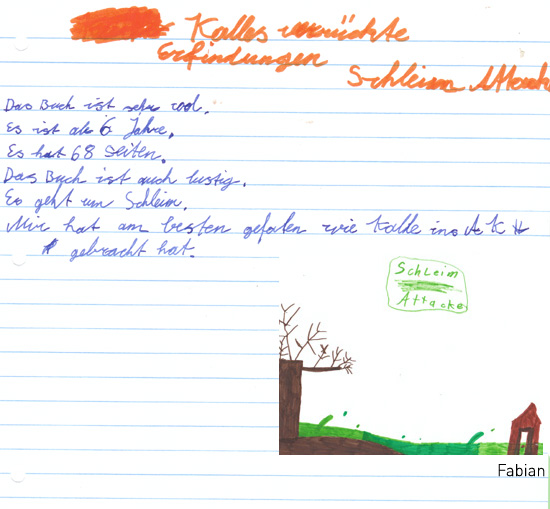 Kalles verrückte
Erfindungen
Schleim Attack
Das Buch ist sehr cool.
Es ist ab 6 Jahre.
Es hat 68 Seiten.
Das Buch ist auch lustig.
Es geht um Schleim.
Mir hat am besten gefalen wie Kalle ins A K
gebracht hat.
Schleim
Attacke
Fabian